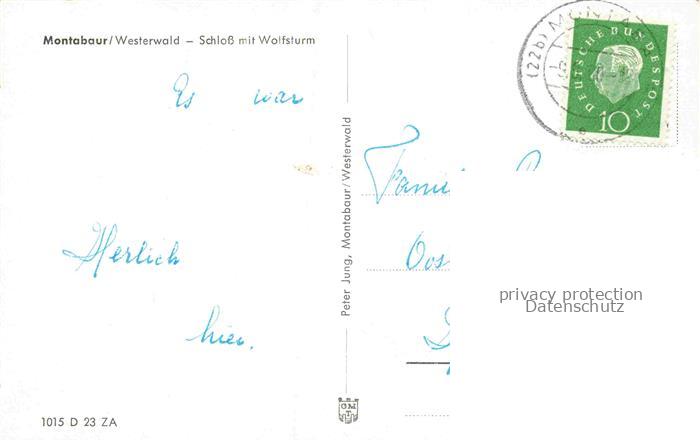 Montabaur/Westerwald – Schloß mit Wolfsturm
Es war
Herlich
hier.
1015 D 23 ZA
Peter Jung, Montabaur/Westerwald
(22b) MONTA
DEUTSCHE BUNDESPOST
10
Oos
privacy protection
Datenschutz